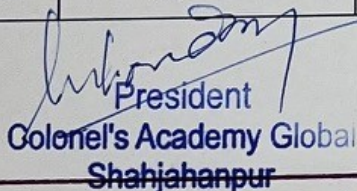 President
Colonel's Academy Global
Shahjahanpur